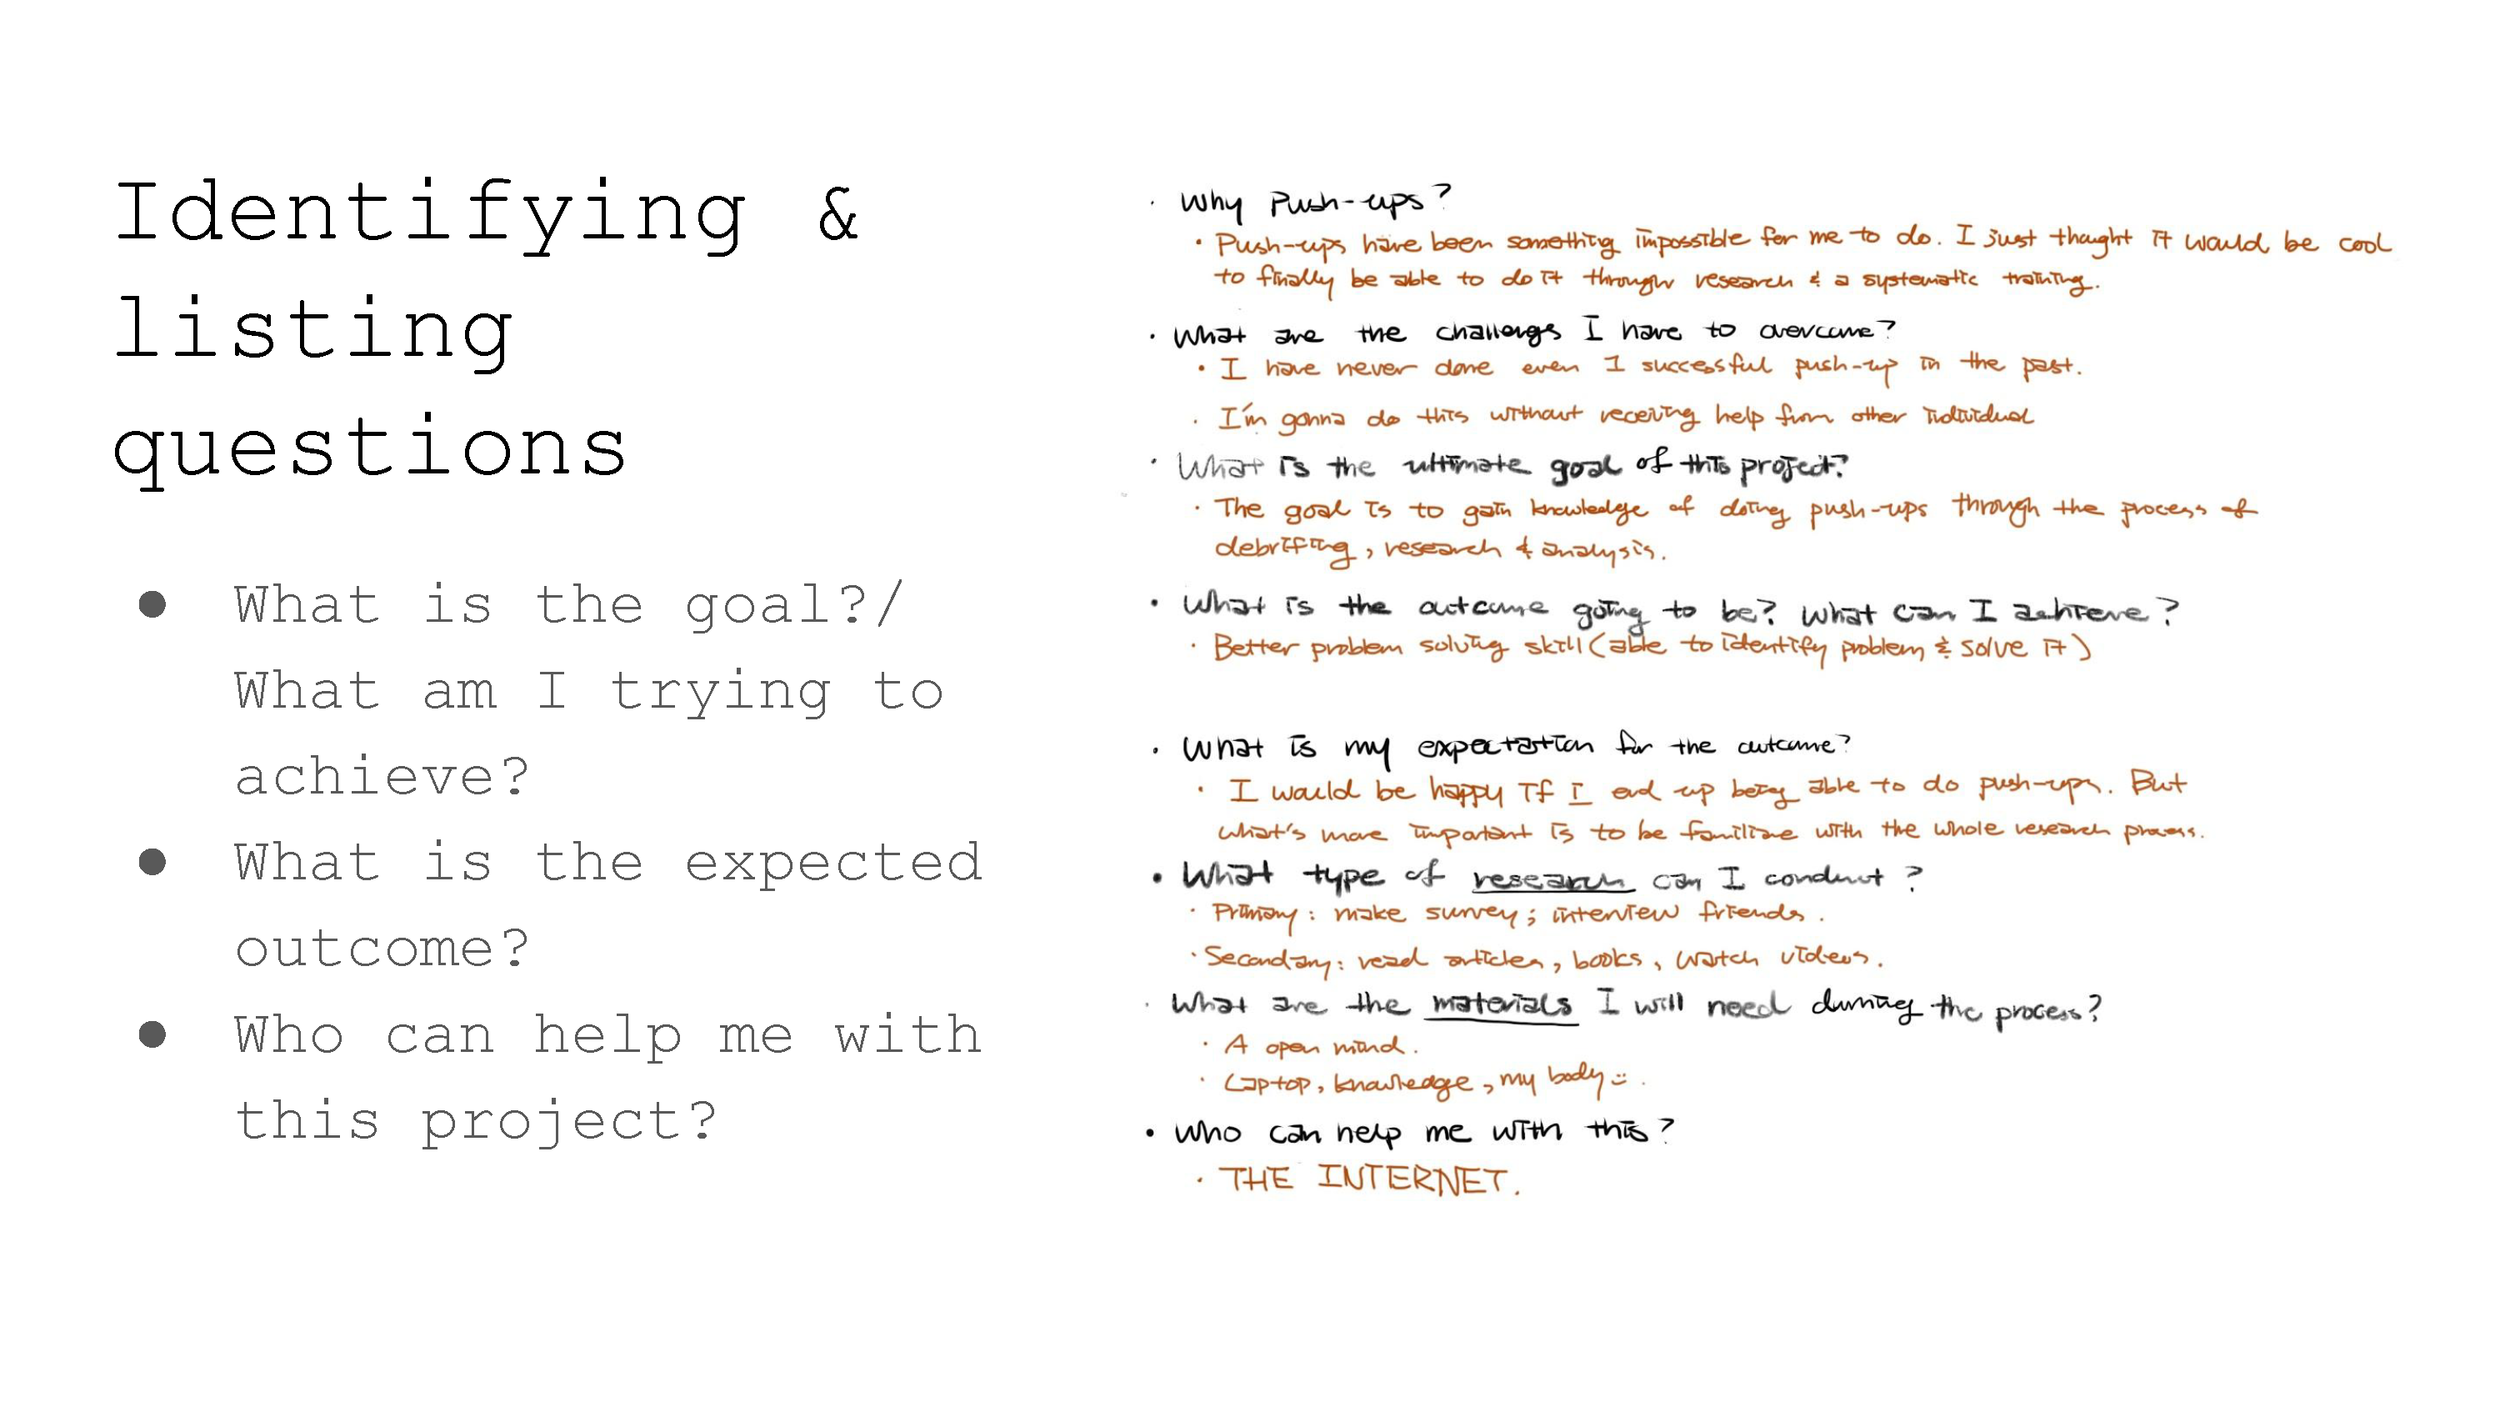 Identifying &
listing
questions
● What is the goal?/
What am I trying to
achieve?
● What is the expected
outcome?
● Who can help me with
this project?
· Why Push-ups?
· Push-ups have been something impossible for me to do. I just thought it would be cool
to finally be able to do it through research & a systematic training.
· What are the challenges I have to overcome?
· I have never done even 1 successful push-up in the past.
· I'm gonna do this without receiving help from other individual
· What is the ultimate goal of this project?
· The goal is to gain knowledge of doing push-ups through the process of
debrifing, research & analysis.
· What is the outcome going to be? What can I achieve?
· Better problem solving skill (able to identify problem & solve it)
· What is my expectation for the outcome?
· I would be happy if I end up being able to do push-ups. But
what's more important is to be familiar with the whole research process.
· What type of research can I conduct?
· Primary: make survey; interview friends.
· Secondary: read articles, books, watch videos.
· What are the materials I will need during the process?
· A open mind.
· Laptop, knowledge, my body :).
· Who can help me with this?
· THE INTERNET.